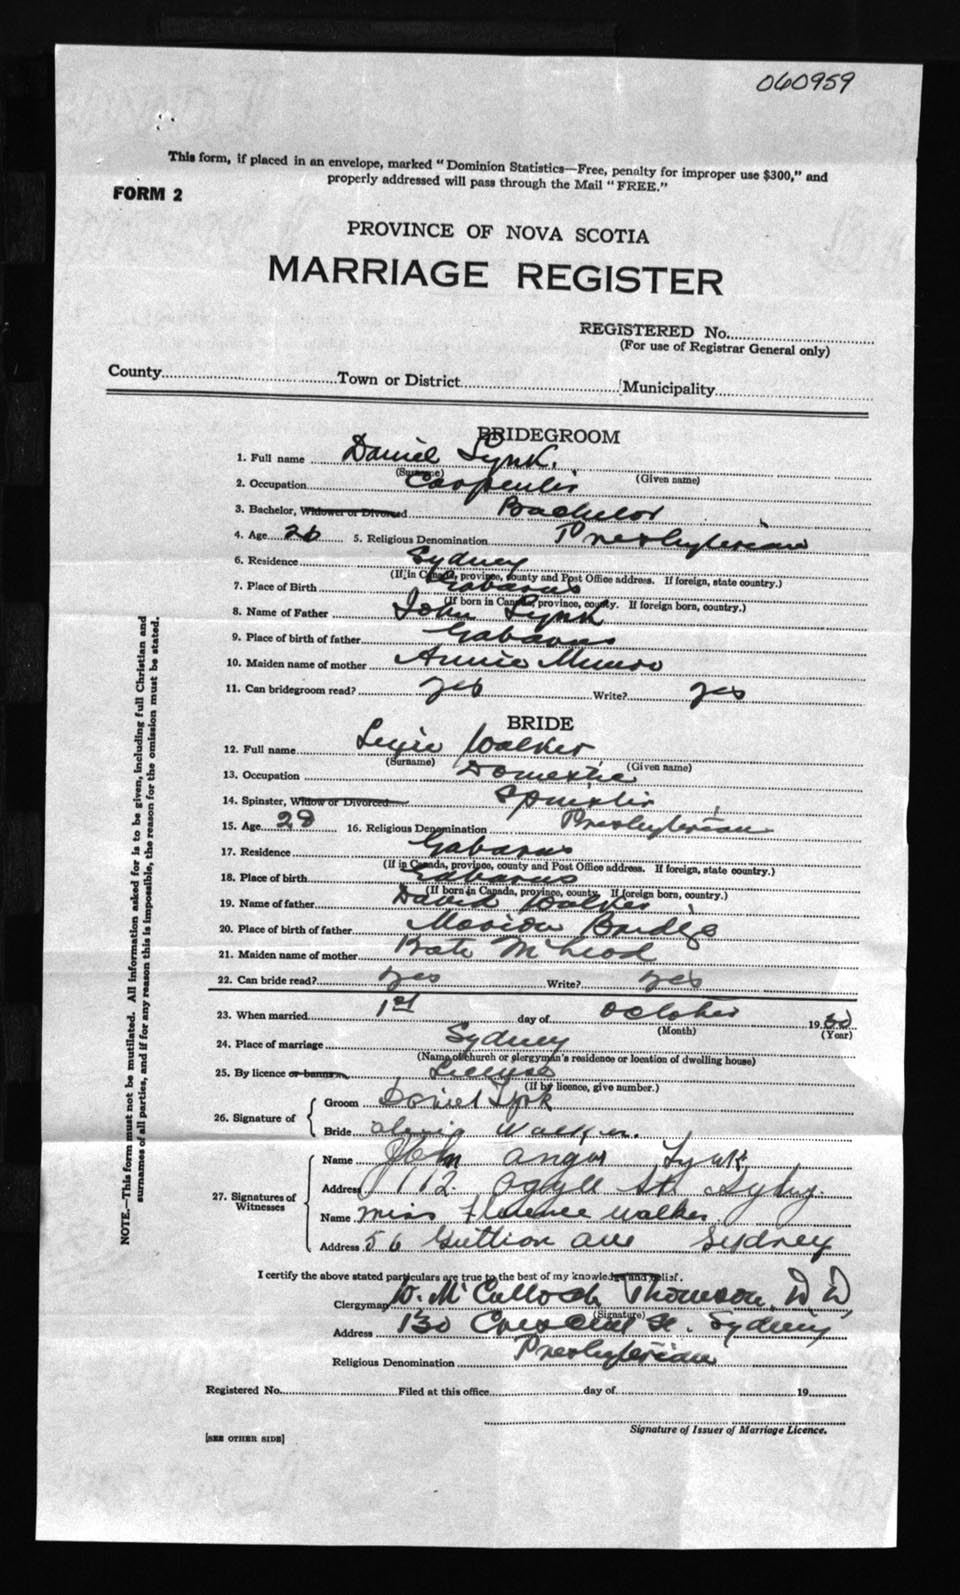 060959
This form, if placed in an envelope, marked "Dominion Statistics—Free, penalty for improper use $300," and
properly addressed will pass through the Mail "FREE."
FORM 2
PROVINCE OF NOVA SCOTIA
MARRIAGE REGISTER
REGISTERED No.
(For use of Registrar General only)
County Town or District Municipality
BRIDEGROOM
1. Full name Daniel Lynk.
(Surname) (Given name)
2. Occupation Carpenter
3. Bachelor, Widower or Divorced Bachelor
4. Age 26 5. Religious Denomination Presbyterian
6. Residence Sydney
(If in Canada, province, county and Post Office address. If foreign, state country.)
7. Place of Birth Gabarus
(If born in Canada, province, county. If foreign born, country.)
8. Name of Father John Lynk
9. Place of birth of father Gabarus
10. Maiden name of mother Annie Munro
11. Can bridegroom read? yes Write? yes
BRIDE
12. Full name Lexie Walker
(Surname) (Given name)
13. Occupation Domestic
14. Spinster, Widow or Divorced Spinster
15. Age 28 16. Religious Denomination Presbyterian
17. Residence Gabarus
(If in Canada, province, county and Post Office address. If foreign, state country.)
18. Place of birth Gabarus
(If born in Canada, province, county. If foreign born, country.)
19. Name of father David Walker
20. Place of birth of father Marion Bridge
21. Maiden name of mother Kate McLeod
22. Can bride read? yes Write? yes
23. When married 1st day of October 1930
(Month) (Year)
24. Place of marriage Sydney
(Name of church or clergyman's residence or location of dwelling house)
25. By licence or banns License
(If by licence, give number.)
26. Signature of Groom Daniel Lynk
Bride Alexia Walker.
27. Signatures of Witnesses Name John Angus Lynk
Address 112 Argyle St. Sydney.
Name Miss Florence Walker
Address 56 Ave Sydney
I certify the above stated particulars are true to the best of my knowledge and belief.
Clergyman W. McCulloch Thomson, D D
(Signature)
Address 130 Crescent St. Sydney
Religious Denomination Presbyterian
Registered No. Filed at this office day of 19
Signature of Issuer of Marriage Licence.
[SEE OTHER SIDE]
NOTE.—This form must not be mutilated. All information asked for is to be given, including full Christian and
surnames of all parties, and if for any reason this is impossible, the reason for the omission must be stated.